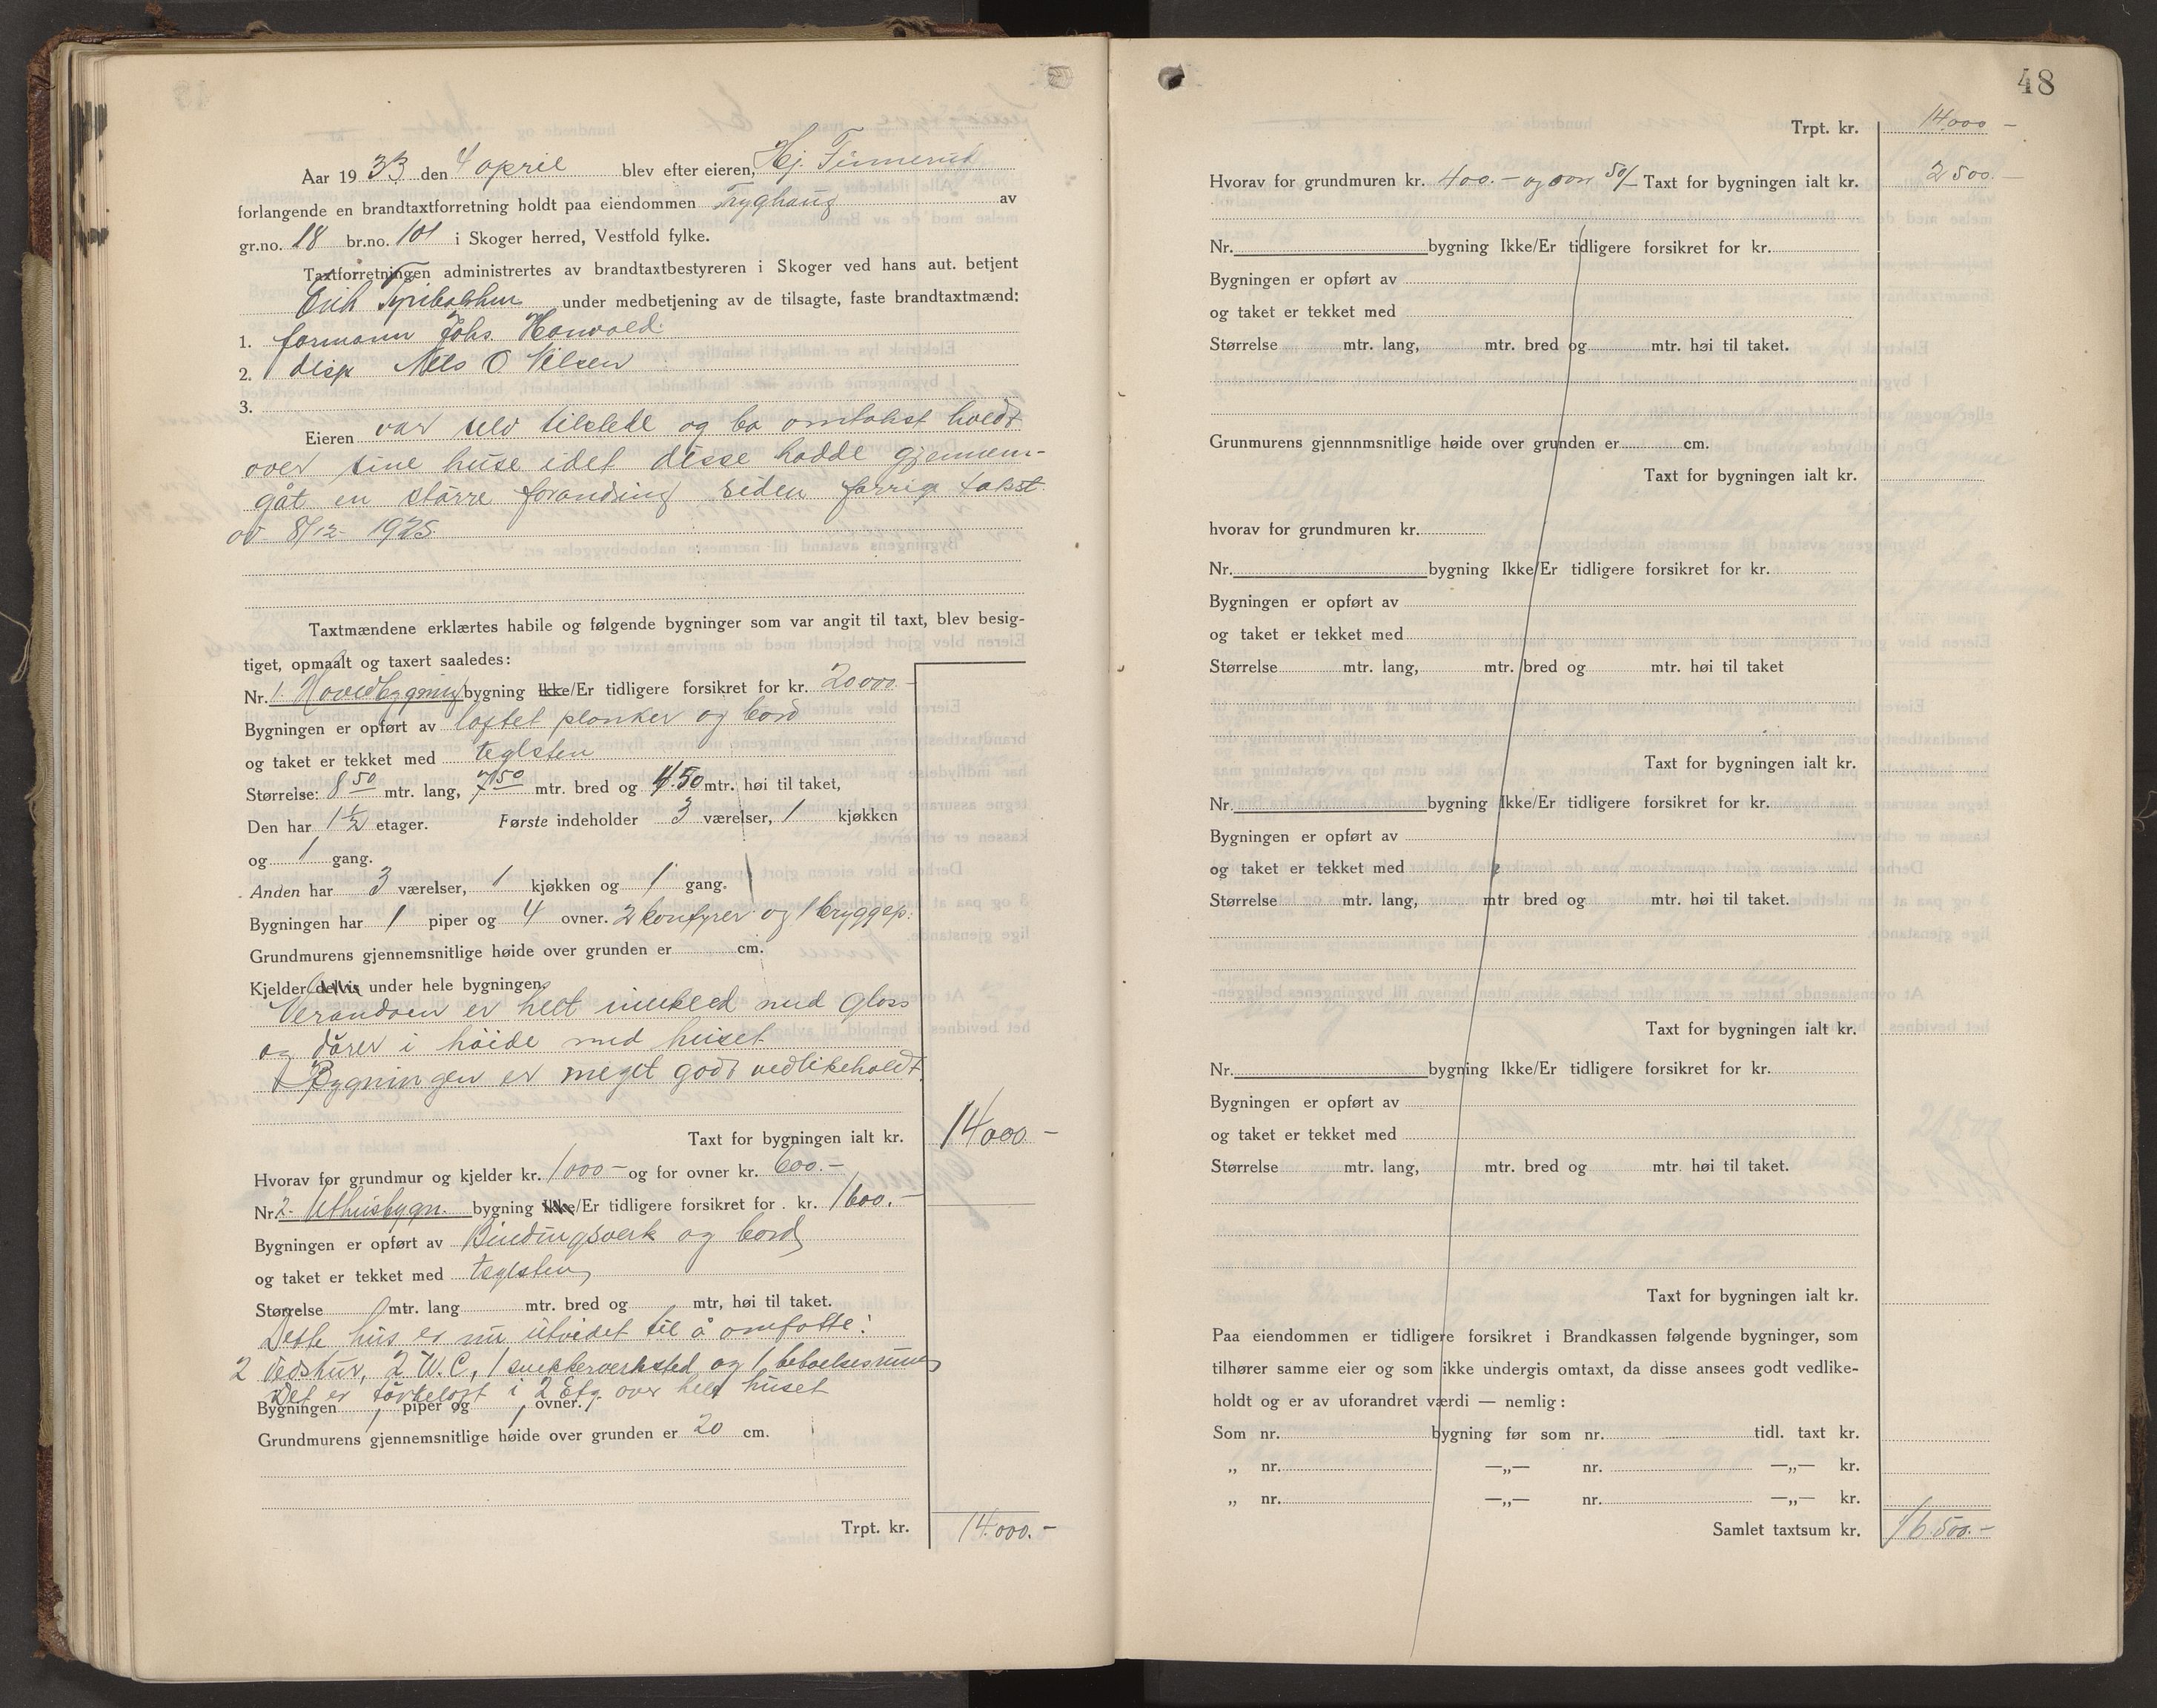 Aar 1933 den 4 april blev efter eieren, Hj. Finnerud
forlangende en brandtaxtforretning holdt paa eiendommen Tryghaug av
gr.no. 18 br.no. 101 i Skoger herred, Vestfold fylke.
Taxtforretningen administrertes av brandtaxtbestyreren i Skoger ved hans aut. betjent
Erik under medbetjening av de tilsagte, faste brandtaxtmænd:
1. formann Johs. Horvold.
2. disp Nils O Nilsen
3.
Eieren var selv tilstede og ba omtakst holdt
over sine huse idet disse hadde gjennem-
gåt en større forandring siden forrige takst
av 8/12- 1925.
Taxtmændene erklærtes habile og følgende bygninger som var angit til taxt, blev besig-
tiget, opmaalt og taxert saaledes:
Nr. 1. Hovedbygning bygning Ikke/Er tidligere forsikret for kr. 20000.-
Bygningen er opført av laftet planker og bord
og taket er tekket med teglsten
Størrelse: 8 50 mtr. lang, 7 50 mtr. bred og 4.50 mtr. høi til taket,
Den har 1½ etager. Første indeholder 3 værelser, 1 kjøkken
og 1 gang.
Anden har 3 værelser, 1 kjøkken og 1 gang.
Bygningen har 1 piper og 4 ovner. 2 komfyrer og 1 bryggep.
Grundmurens gjennemsnitlige høide over grunden er cm.
Kjelder delvis under hele bygningen.
Verandaen er helt innkled med glass
og dører i høide med huset
Bygningen er meget godt vedlikeholdt.
Taxt for bygningen ialt kr. 14000.-
Hvorav for grundmur og kjelder kr. 1000.- og for ovner kr. 600.-
Nr. 2. Uthusbygn. bygning Ikke/Er tidligere forsikret for kr. 1600.-
Bygningen er opført av Bindingsverk og bord
og taket er tekket med teglsten
Størrelse mtr. lang mtr. bred og mtr, høi til taket.
Dette hus er nu utvidet til å omfatte:
2 Vedskur, 2 W.C., 1 snekkerverksted og 1 beboelsesrum
Det er tørkeloft i 2 Etg. over hele huset
Bygningen 1 piper og 1 ovner.
Grundmurens gjennemsnitlige høide over grunden er 20 cm.
Trpt. kr. 14.000.-
48
Trpt. kr. 14000 -
Hvorav for grundmuren kr. 400.- og ovn 50/- Taxt for bygningen ialt kr. 2500.-
Nr. bygning Ikke/Er tidligere forsikret for kr.
Bygningen er opført av
og taket er tekket med
Størrelse mtr. lang, mtr. bred og mtr. høi til taket.
Grunmurens gjennnmsnitlige høide over grunden er cm.
Taxt for bygningen ialt kr.
hvorav for grundmuren kr.
Nr. bygning Ikke/Er tidligere forsikret for kr.
Bygningen er opført av
og taket er tekket med
Størrelse mtr. lang, mtr. bred og mtr. høi til taket
Taxt for bygningen ialt kr.
Nr. bygning Ikke/Er tidligere forsikret for kr.
Bygningen er opført av
og taket er tekket med
Størrelse mtr. lang, mtr bred og mtr. høi til taket.
Taxt for bygningen ialt kr.
Nr. bygning Ikke/Er tidligere forsikret for kr.
Bygningen er opført av
og taket er tekket med
Størrelse mtr. lang, mtr. bred og mtr. høi til taket.
Taxt for bygningen ialt kr.
Paa eiendommen er tidligere forsikret i Brandkassen følgende bygninger, som
tilhører samme eier og som ikke undergis omtaxt, da disse ansees godt vedlike-
holdt og er av uforandret værdi — nemlig:
Som nr. bygning før som nr. tidl. taxt kr.
„ nr. —„— nr. —„— kr.
„ nr. —„— nr. —„— kr.
Samlet taxtsum kr. 16.500.-